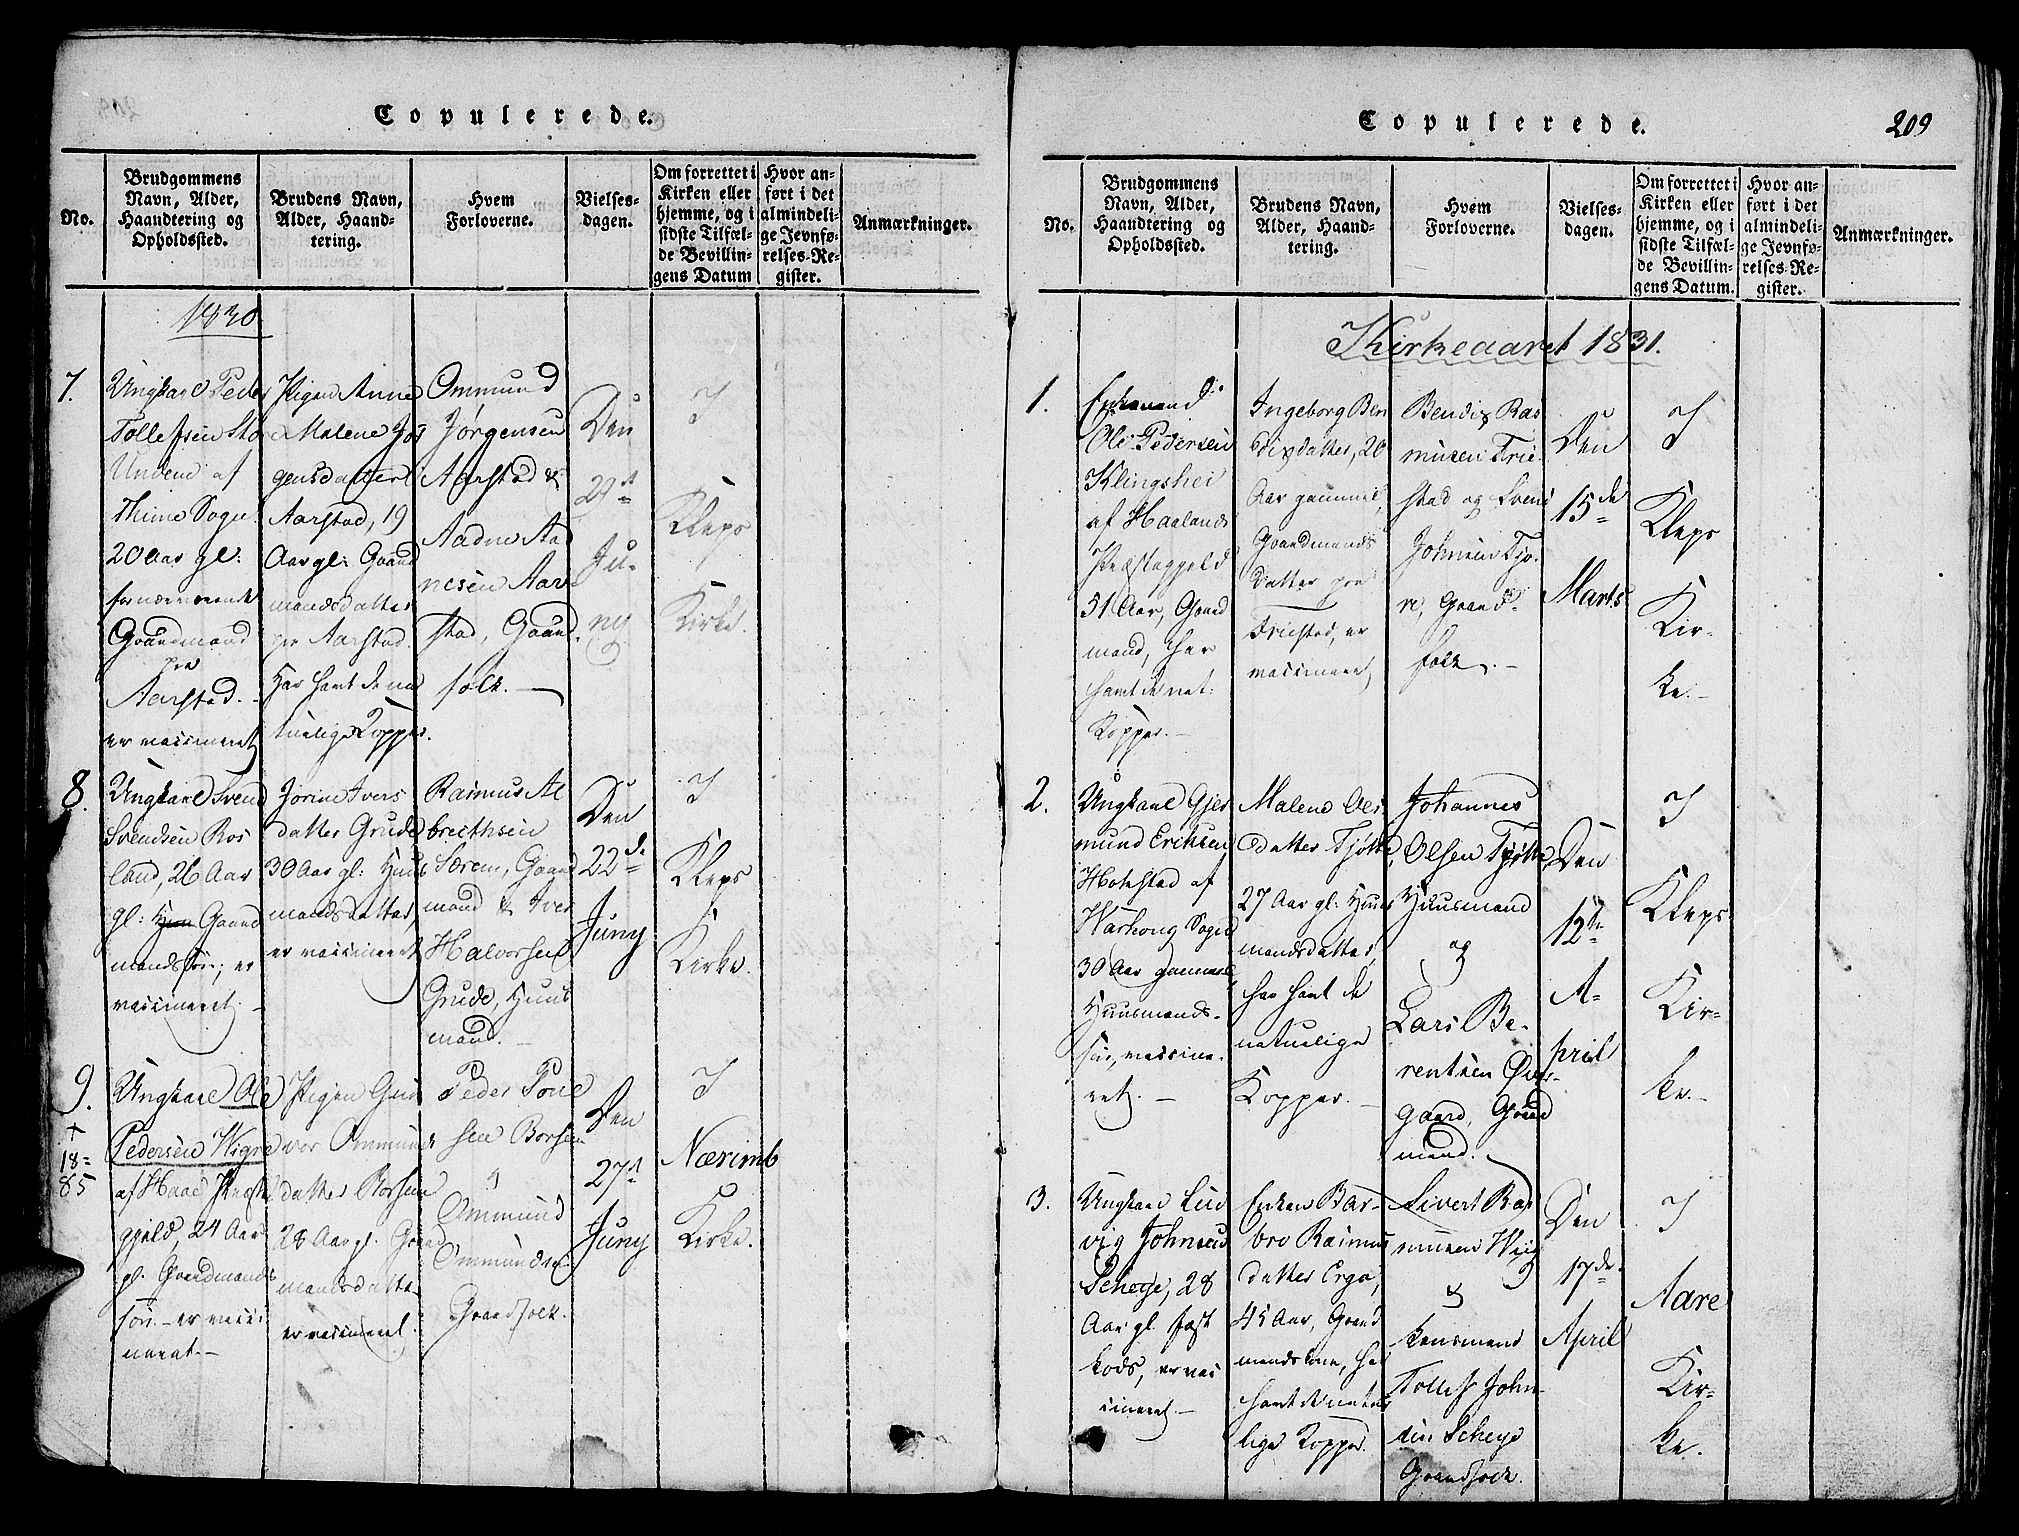 Copulerede.
No.
Brudgommens
Navn, Alder,
Haandtering og
Opholdssted.
Brudens Navn,
Alder, Haand-
tering.
Hvem
Forloverne.
Vielses-
dagen.
Om forrettet i
Kirken eller
hjemme, og i
sidste Tilfæl-
de Bevillin-
gens Datum
Hvor an-
ført i det
almindeli-
ge Jevnfø-
relses-Re-
gister.
Anmærkninger.
1830.
7.
Ungkarl Peder
Tollefsen Sto
Undem af
Thime Sogn
20 Aar gl:
fornærværende
Gaardmand
paa
Aarstad.
er vaccineret
Pigen Anne
Malene Jør
gensdatter
Aarstad, 19
Aar gl: Gaard
mandsdatter
paa Aarstad.
Har havt de na
turlige Kopper.
Ommund
Jørgensen
Aarstad &
Aadne Aad
nesen Aar
stad, Gaard
folk. —
Den
21de
Ju-
ny
I
Kleps
Kirke.
8.
Ungkarl Svend
Svendsen Ros
land, 26 Aar
gl: Gaard
mandssøn; er
vaccineret. —
Jorine Ivers
datter Grude
30 Aar gl: Huus
mandsdatter,
er vaccineret
Rasmus Al
brecthsen
Særem, Gaard
mand & Iver
Halvorsen
Grude, Huus
mand. —
Den
22de
Juny
I
Kleps
Kirke.
9.
+
18=
85
Ungkarl Ole
Pedersen Wigre
af Haae Præste
gjeld, 24 Aar
gl. Gaardmands
søn. — er vacci
neret. —
Pigen Gun
vor Ommunds
datter Borsem
28 Aar gl. Gaard
mandsdatter
er vaccineret.
Peder Poul
sen Borsem
&
Ommund
Ommundsen
Gaardfolk.
Den
27de
Juny
I
Nærimb
Kirke.
Copulerede.
209
No.
Brudgommens
Navn, Alder,
Haandtering og
Opholdssted.
Brudens Navn,
Alder, Haand-
tering.
Hvem
Forloverne.
Vielses-
dagen.
Om forrettet i
Kirken eller
hjemme, og i
sidste Tilfæl-
de Bevillin-
gens Datum.
Hvor an-
ført i det
almindeli-
ge Jevnfø-
relses-Re-
gister.
Anmærkninger.
Kirkeaaret 1831.
1.
Enkemand
Ole Pedersen
Klingshei
af Haalands
Præstegjeld
51 Aar, Gaard
mand, har
havt de nat:
Kopper. —
Ingeborg Ben
dixdatter, 20
Aar gammel,
Gaardmands
datter paa
Friestad, er
vaccineret,
Bendix Ras
musen Frie-
stad og Svend
Johnsen Tjø-
re, Gaard-
folk. —
Den
15de
Marts
I
Kleps
Kir-
ke. —
2.
Ungkarl Gjer
mund Eriksen
Hotestad af
Warhoug Sogn
30 Aar gammel
Huusmands-
søn, vaccine-
ret. —
Malene Ols
datter Tjøtte,
27 Aar gl. Huus
mandsdatter,
har havt de
naturlige
Kopper. —
Johannes
Olsen Tjøtte,
Huusmand
og
Lars Be-
rentsen Øver-
gaard, Gaard
mand.
Den
12te
A-
pril
I
Kleps
Kir-
ke. —
3.
Ungkarl Lud
vig Johnsen
Scheye, 28
Aar gl. fast
kods, er vac
cineret —
Enken Bar-
bro Rasmus
datter Erga,
45 Aar, Gaard
mandskone, har
havt de natur
lige Kopper.
Sivert Ras
musen Wiig
&
Lensmand
Tollef John-
sen Scheye
Gaardfolk.
Den
17de
April
I
Aare
Kir-
ke.